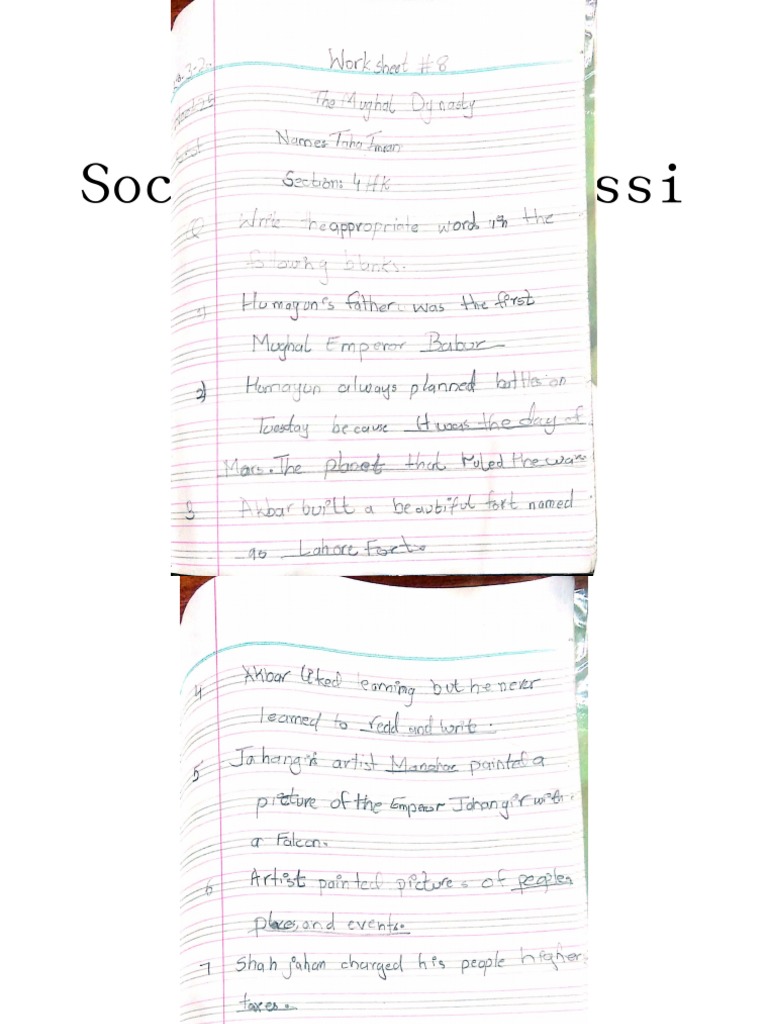 Worksheet #8
The Mughal Dynasty
Name: Taha Imran
Section: 4 HK
Soc ssi
Q Write the appropriate words in the
following blanks.
1) Humayun's father was the first
Mughal Emperor Babur
2) Humayun always planned battles on
Tuesday because it was the day of
Mars. The planet that ruled the war
3 Akbar built a beautiful fort named
as Lahore Fort.
4 Akbar liked learning but he never
learned to read and write.
5 Jahangir artist Manohar painted a
picture of the Emperor Jahangir with
a Falcon.
6 Artist painted pictures of people,
places, and events.
7 Shah jahan charged his people higher
taxes.